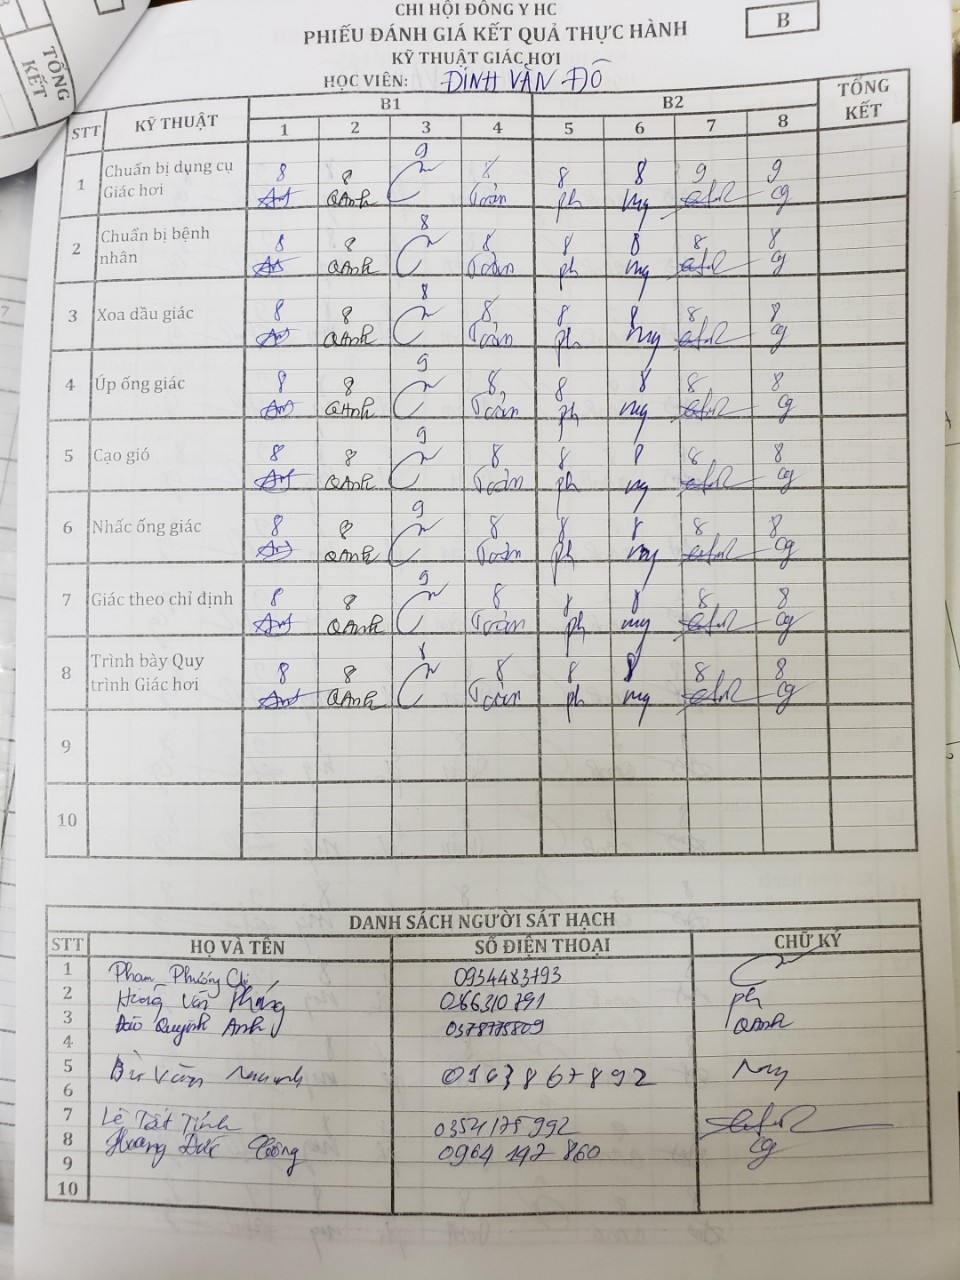 TỔNG KẾT
CHI HỘI ĐÔNG Y HC
PHIẾU ĐÁNH GIÁ KẾT QUẢ THỰC HÀNH
B
KỸ THUẬT GIÁC HƠI
HỌC VIÊN: ĐINH VĂN ĐÔ
STT KỸ THUẬT B1 B2 TỔNG KẾT
1 2 3 4 5 6 7 8
1 Chuẩn bị dụng cụ Giác hơi 8 8 9 8 8 8 9 9
QAnh Toản ph my cg
2 Chuẩn bị bệnh nhân 8 8 8 8 8 8 8 8
QAnh Toản ph my cg
3 Xoa dầu giác 8 8 8 8 8 8 8 8
QAnh Toản ph my cg
4 Úp ống giác 8 8 9 8 8 8 8 8
QAnh Toản ph my cg
5 Cạo gió 8 8 9 8 8 8 8 8
QAnh Toản ph my cg
6 Nhấc ống giác 8 8 9 8 8 8 8 8
QAnh Toản ph my cg
7 Giác theo chỉ định 8 8 9 8 8 8 8 8
QAnh Toản ph my cg
8 Trình bày Quy trình Giác hơi 8 8 8 8 8 8 8 8
QAnh Toản ph my cg
9
10
DANH SÁCH NGƯỜI SÁT HẠCH
STT HỌ VÀ TÊN SỐ ĐIỆN THOẠI CHỮ KÝ
1 Phạm Phương Chi 0934483793
2 Văn 0866310791 ph
3 Đào Quỳnh Anh 0378775809 QAnh
4
5 Văn 0963867892
6
7 Lê Tất Tính 0354175992
8 Hoàng Đức 0964 142 860 cg
9
10